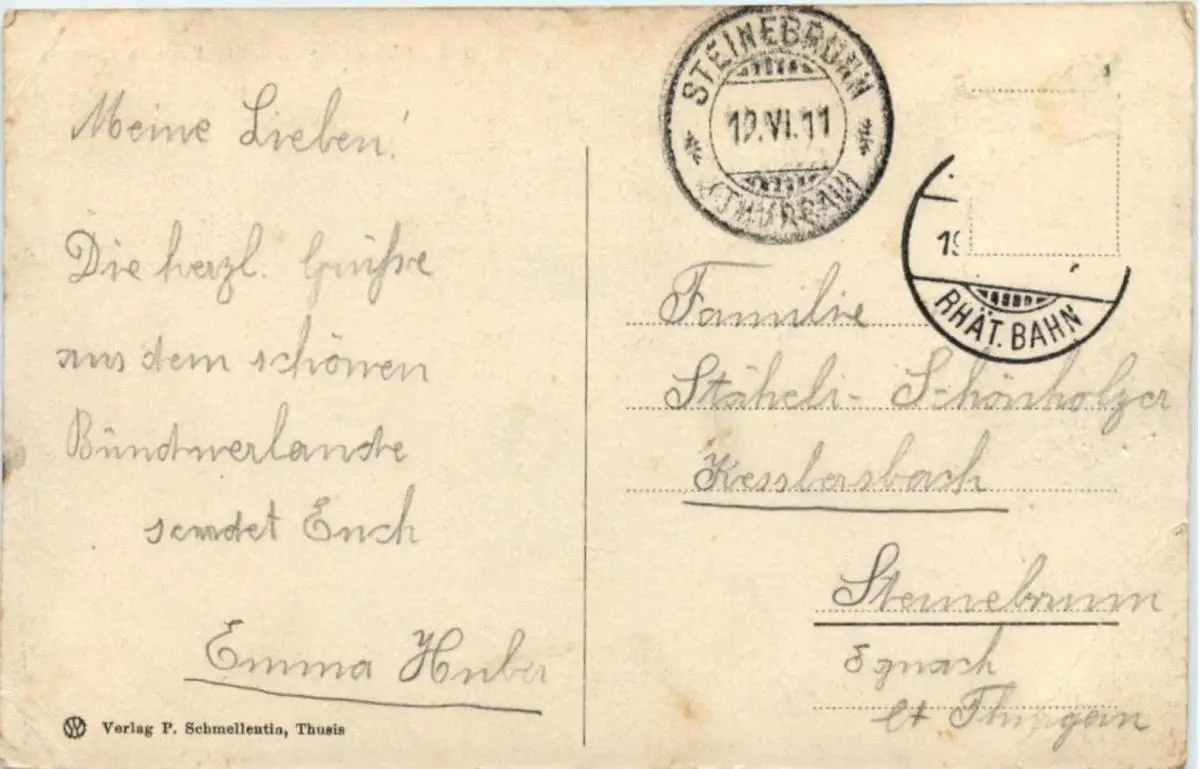 Meine Lieben!
Die herzl. Grüsse
aus dem schönen
Bündnerlande
sendet Euch
Emma Huber
Verlag P. Schmellentin, Thusis
STEINEBRUNN
19.VI.11
(THURGAU)
19
RHÄT. BAHN
Familie
Stäheli-Schönholzer
Kesslersbach
Steinebrunn
Egnach
Ct Thurgau